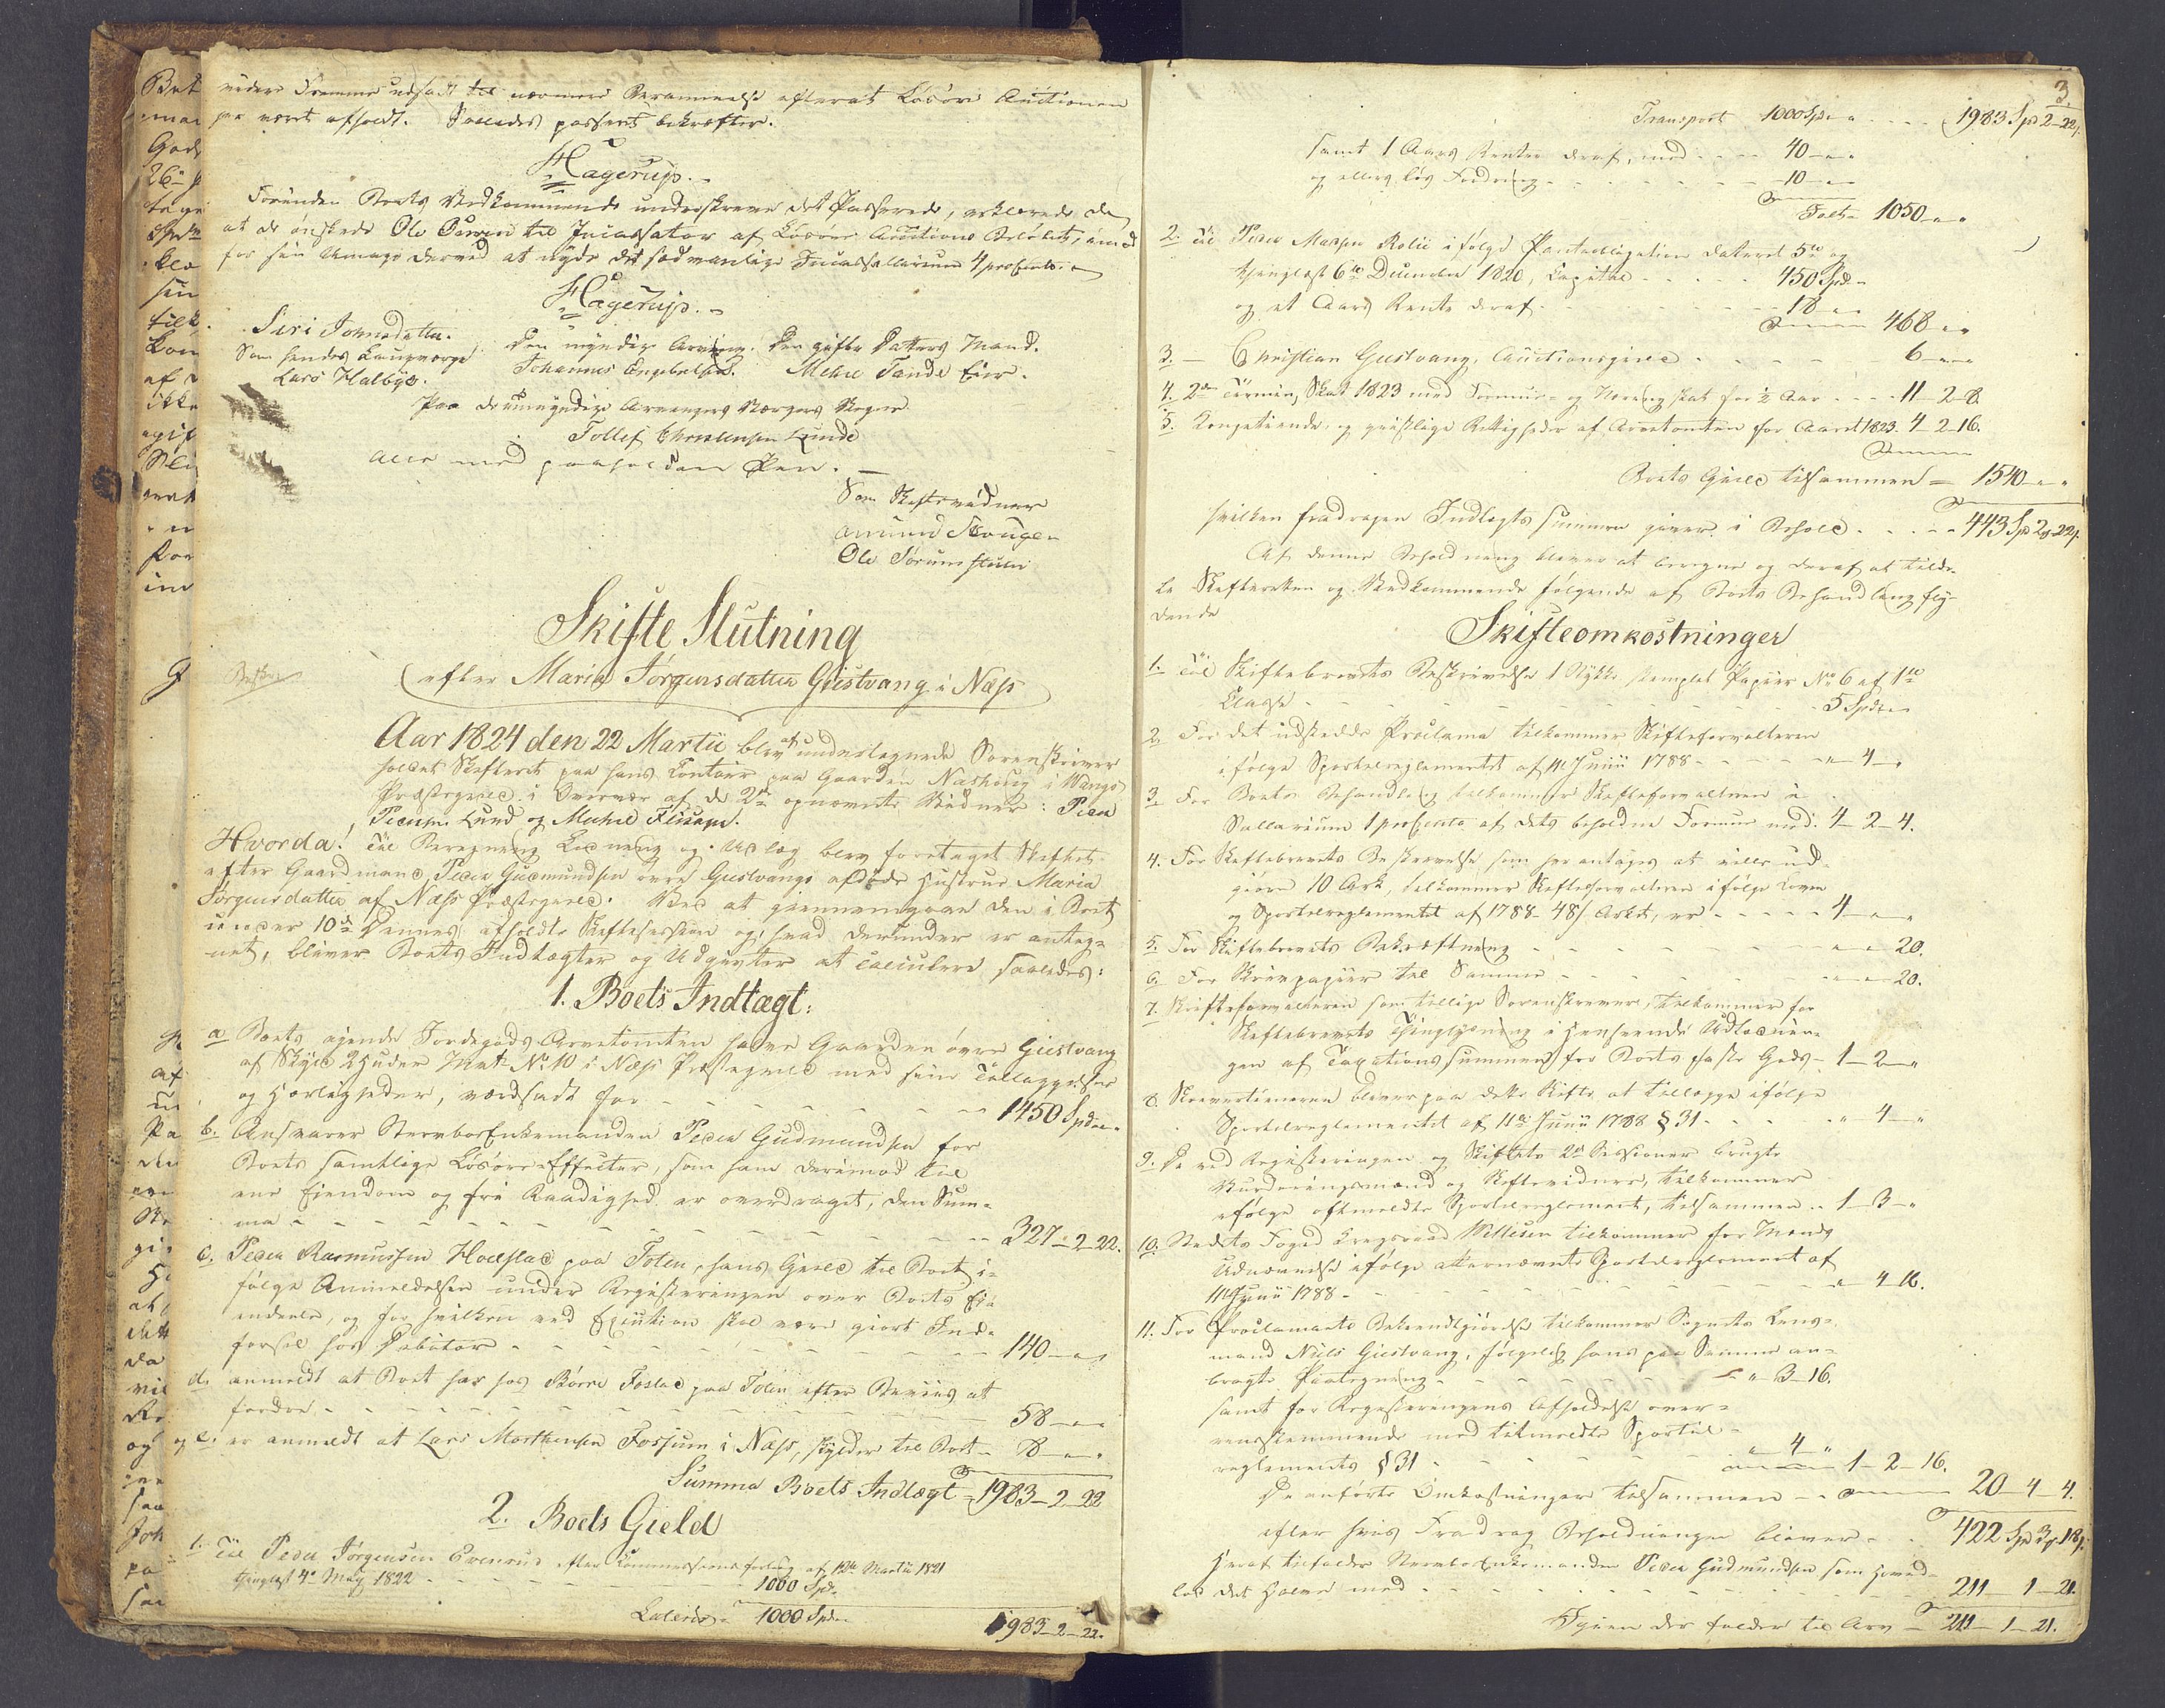 videre Fremme udsadt til nærmere Berammelse efterat Løsøre Auctionen
har været afholdt. Saaledes passeret bekræfter.
Hagerup.
Forinden Boets Vedkommende underskreve det Passerede, erklærede de
at de ønskede Ole til Incassator af Løsøre Auctions Beløbet, imod
for sin Umage derved at nyde det sædvanlige Incassallarium 4 procento.
Hagerup.
Siri Johnsdatter.
Som hendes Laugværge
Lars Halbye.
Den myndige Arving.
Johannes Engebretsen.
Den gifte Datters Mand.
Paa de umyndige Arvingers Værges Vegne
Tollef Christensen Lunde
alle med paaholden Pen.
Som Skiftevidner
Amund Skougen
Ole
Skifte Slutning
efter Maria Jørgensdatter Giestvang i Næss
Aar 1824 den 22 Martii blev af undertegnede Sorenskriver
holdet Skifteret paa hans Contoir paa Gaarden i Wangs
Præstegield i Overvær af de 2de opnævnte Vidner: Peder
Lund og Michel
Hvorda! Til Beregning Ligning og Udlæg blev foretaget Skiftet
efter Gaardmand Peder Gudmundsen øvre Giestvangs afdøde Hustrue Maria
Jørgensdatter af Næss Præstegield. Ved at giennemgaae den i Boet
under 10de Dennes afholdte Skiftesession og hvad derunder er anteg-
net, bliver Boets Indtægter og Udgivter at calculere saaledes:
1. Boets Indtægt:
a Boets ejende Jordegods Arvetomten halve Gaarden øvre Giestvang
af Skyld 2 Huder Mat. No 10 i Næss Præstegield med sine Tillæggelser
og Herligheder, værdsadt for - - - 1450 Spd
b. Ansvarer Stervboe Enkemanden Peder Gudmundsen for
Boets samtlige Løsøre Effecter, som ham derimod til
ene Eiendom og frie Raadighed er overdraget, den Sum-
ma - - - 327 - 2 - 22.
c. Peder Rasmussen paa Toten, hans Gield til Boet i-
følge Anmeldelsen under Registeringen over Boets Eie
endeele, og for hvilken ved Execution skal være giort Ind-
førsel hos Debitor - - - 140 - "
d. anmeldt at Boet har hos Børre paa Toten efter Beviis at
fordre - - - 58 - "
og e. er anmeldt at Lars Morthensen Fossum i Næss, skylder til Boet - 8 - "
Summa Boets Indtægt - 1983 - 2 - 22
2. Boets Gield
1. Til Peder Jørgensen Evensrud efter Commissionsforlig af 12te Martii 1821
thinglæst 4de May 1822 - - - 1000 Spd
Lateris - 1000 Spd 1983 - 2 - 22.
3.
Transport 1000 Spd " - - - 1983 Spd 2 - 22
samt 1 Aars Renter deraf, med - - 40 - "
og ellers løs Fordring - - - 10 - "
1050 - "
2. Til Peder Madsen Rolie ifølge Pantobligation dateret 5te og
thinglæst 6te December 1820, Capital - - - 450 Spd
og et Aars Rente deraf - - - 18 - "
468 "
3. - Christian Giestvang, Auctionsgield - - - 6 - "
4. 2den Termin, Skat 1823 med Formue- og Næringsskat for ½ Aar - - - 11 - 2 - 8
5. Kongetiende, og geistlige Rettigheder af Arvetomten for Aaret 1823. 4 - 2 - 16.
Boets Gield tilsammen = 1540 - "
hvilken fradragen Indtægts summen giver i Behold - - - 443 Spd 2 - 22
Af denne Beholdning bliver at beregne og deraf at tilde-
le Skifteretten og Vedkommende følgende af Boets Behandling fly-
dende
Skifteomkostninger
1. Til Skiftebrevets Beskrivelse 1 Stykke stemplet Papiir No 6 af 1te
Classe - - - 5 Spd
2. For det udstedde Proclama tilkommer Skifteforvalteren
ifølge Sportelreglementet af 11 Junii 1788 - - - " 4 - "
3. For Boets Behandling tilkommer Skifteforvalteren i
Sallarium 1 procento af dets beholdne Formue med: 4 - 2 - 4.
4. For Skiftebrevets Beskrivelse som her antages at ville ud-
giøre 10 Ark, tilkommer Skifteforvalteren ifølge Loven
og Sportelreglementet af 1788 - 48 / Arket, er - - - 4 - "
5. For Skiftebrevets Bekræftning - - - " " 20.
6. For Skrivpapiir til Samme - - - " " 20.
7. Skifteforvalteren som tillige Sorenskriver, tilkommer for
Skiftebrevets Thinglysning i Henseende Udlodnin-
gen af Taxationssummen for Boets faste Gods - 1 - 2 - "
8. Skrivertieneren bliver paa dette Skifte at tillægge ifølge
Sportelreglementet af 11te Junii 1788 § 31 - - - " 4 - "
9. De ved Registeringen og Skiftets 2de Sessioner brugte
Vurderingsmænd og Skiftevidner, tilkommer
ifølge oftmeldte Sportelreglement, tilsammen - 1 - 3 - "
10. Stedets Foged Krigsraad tilkommer for Mænds
Udnævnelse ifølge Sportelreglement af
11 Junii 1788 - - - " 4 - 16.
11. For Proclamaets Bekiendtgiørelse tilkommer Sognets Lens-
mand Niels Giestvang, følgelig hans paa Samme an-
bragte Paategning - - - " 3 - 16.
samt for Registeringens Afholdelse over-
eensstemmende med Sportel-
reglements § 31 - - - " 4 "
1 - 2 - 16.
De anførte Omkostninger tilsammen - - 20 - 4 - 4.
efter hvis Fradrag Beholdningen bliver - - 422 Spd 3 18
Heraf tilfalder Stervboe Enkemanden Peder Gudmundsen som Hoved-
lod det Halve med - - - 211 - 1 - 21.
Igien der falder til Arv - 211 - 1 - 21.